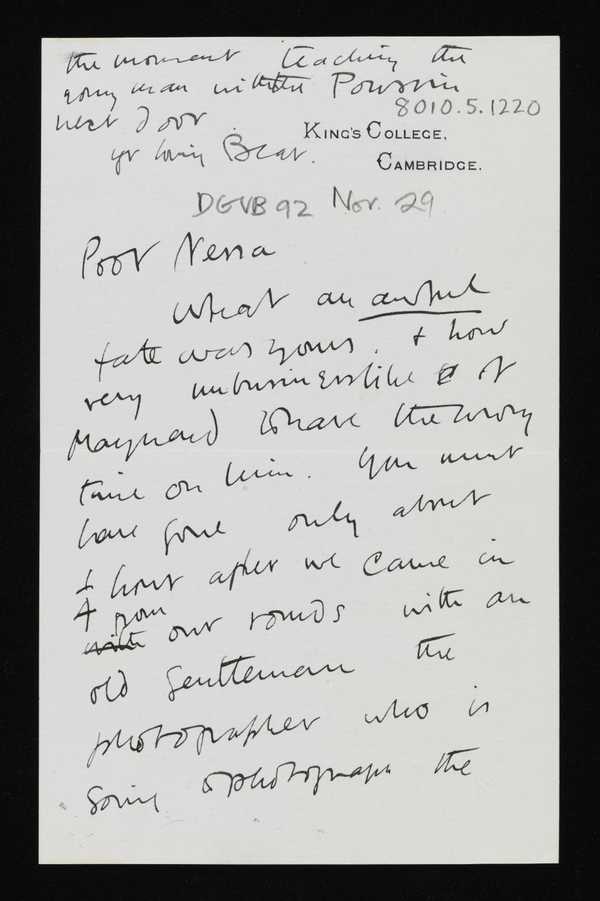 the moment teaching the
young man with the Poussin
next door
yr loving Bear.
8010.5.1220
KING'S COLLEGE,
CAMBRIDGE.
DGVB 92 Nov. 29
Poor Nessa
What an awful
fate was yours. & how
very unbusinesslike of
Maynard to have the wrong
time on him. You must
have gone only about
¼ hour after we came in
from
with our rounds with an
old gentleman the
photographer who is
going to photograph the